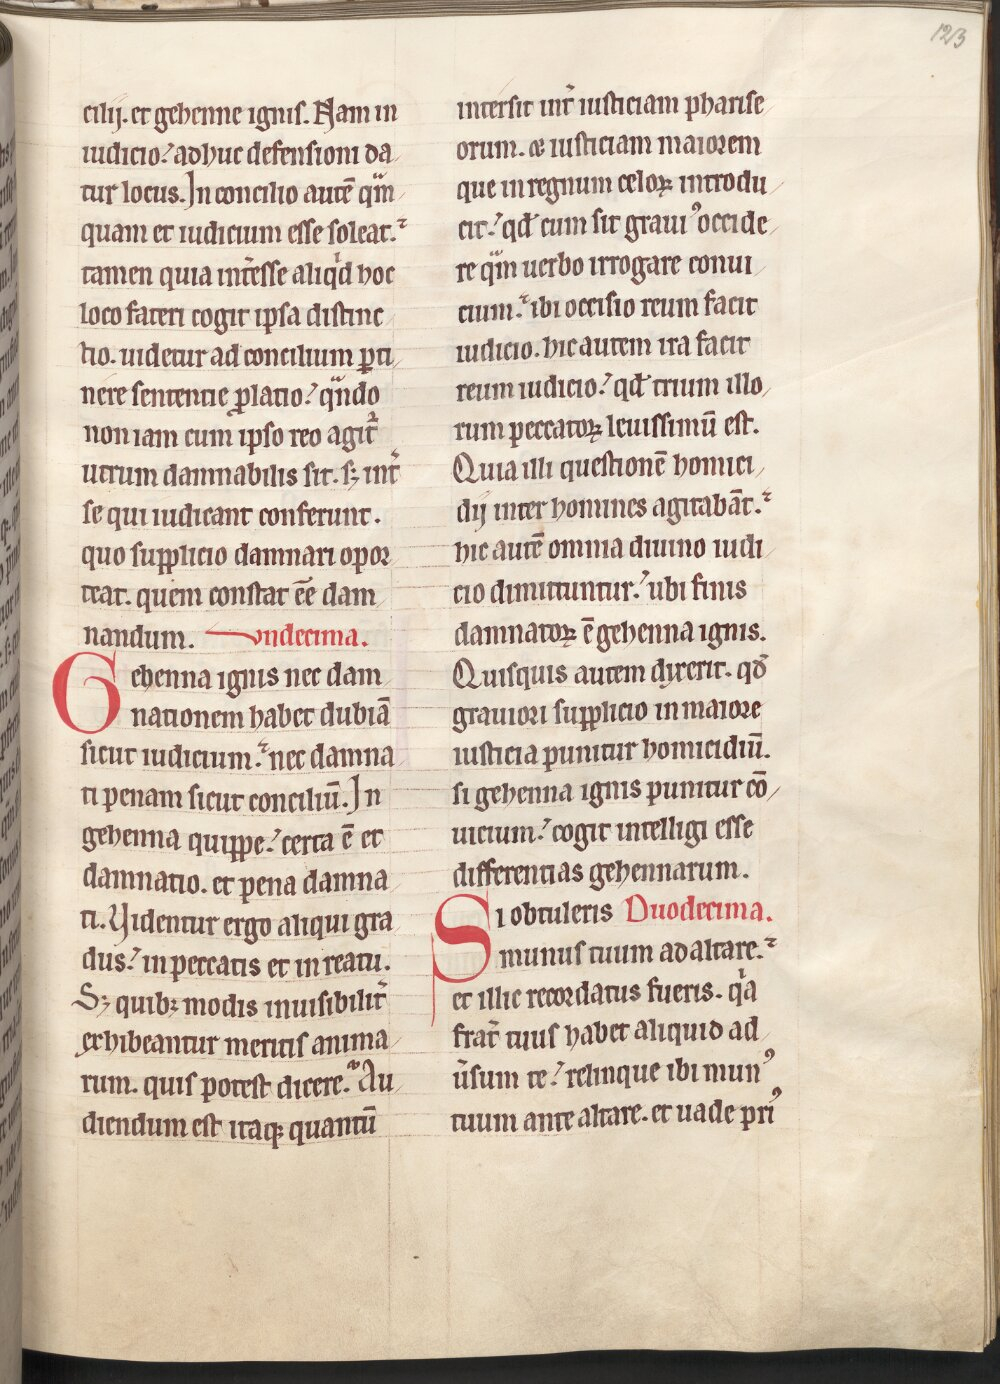 123
cilij. et gehenne ignis. Nam in
iudicio? adhuc defensioni da
tur locus. In concilio autē qm̄
quam et iudicium esse soleat.
tamen quia int̄esse aliq̇d hoc
loco fateri cogit ipsa distinc
tio. uidetur ad concilium ꝑti
nere sententie ꝓlatio? qn̄do
non iam cum ipso reo agit᷑
utrum damnabilis sit. sꝫ int᷑
se qui iudicant conferunt.
quo supplicio damnari opor
teat. quem constat eē dam
nandum. Undecima.
Gehenna ignis nec dam
nationem habet dubiā
sicut iudicium. nec damna
ti penam sicut conciliū. In
gehenna quippe? certa ē et
damnatio. et pena damna
ti. Videntur ergo aliqui gra
dus? in peccatis et in reatu.
Sꝫ quibꝫ modis inuisibilit᷑
exhibeantur meritis anima
rum. quis potest dicere. Au
diendum est itaqꝫ quantū
intersit int᷑ iusticiam pharise
orum. & iusticiam maiorem
que in regnum celoꝝ introdu
cit? qd̄ cum sit grauiꝰ occide
re qm̄ uerbo irrogare conui
cium. ibi occisio reum facit
iudicio. hic autem ira facit
reum iudicio? qd̄ trium illo
rum peccatoꝝ leuissimū est.
Quia illi questionē homici
dij inter homines agitabāt.
hic autē omnia diuino iudi
cio dimittuntur? ubi finis
damnatoꝝ ē gehenna ignis.
Quisquis autem dixerit. qd̄
grauiori supplicio in maiore
iusticia punitur homicidiū.
si gehenna ignis punitur cō
uicium? cogit intelligi esse
differentias gehennarum.
Si obtuleris Duodecima.
munus tuum ad altare.
et illic recordatus fueris. q̇a
frat᷑ tuus habet aliquid ad
ūsum te? relinque ibi munꝰ
tuum ante altare. et uade priꝰ